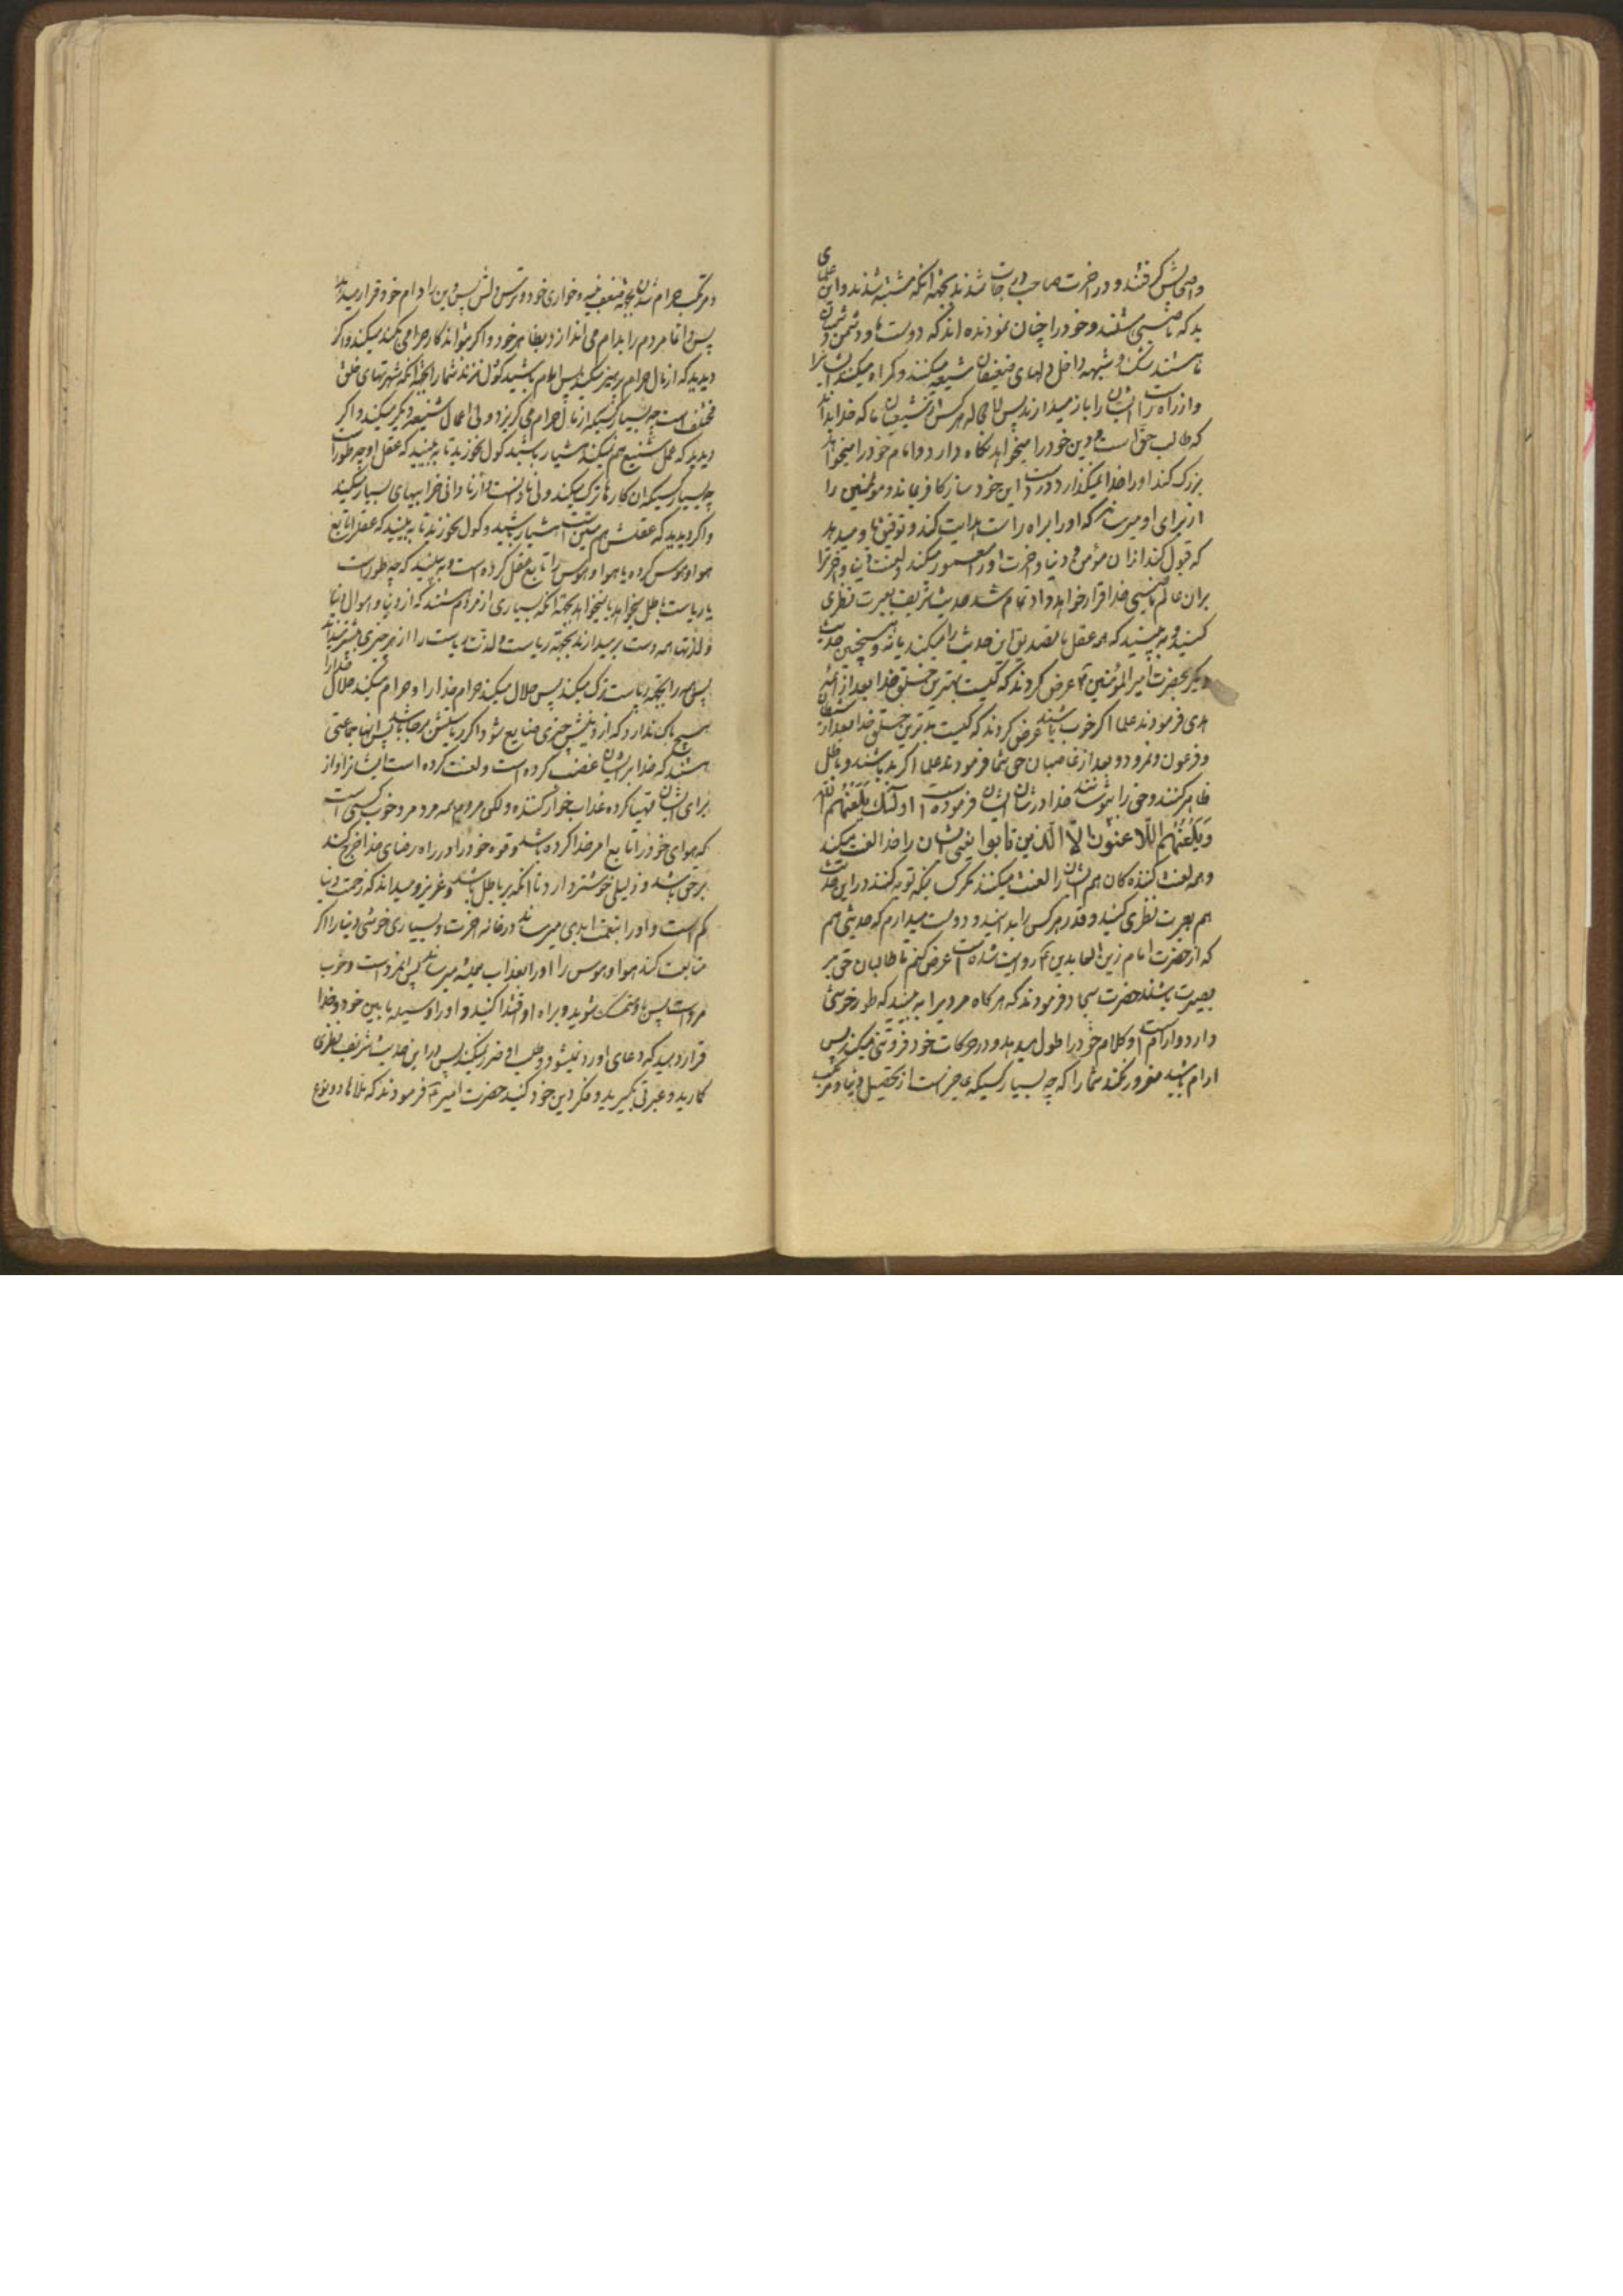 واصلش گرفتند و در اخرت صاحب درجات شدند بجهة انکه مشتبه شدند و این علمای
بد که ناصبی هستند و خود را چنان نموده اند که دوست ما و دشمن دشمنان
ما هستند شک و شبهه داخل دلهای ضعیفان شیعه میکنند و کمراه میکنند ایشانرا
و از راه راست ایشان را باز میدارند پس لا محاله هر کس از شیعیان ما که خدا بداند
که طالب حق است و دین خود را میخواهد نکاه دارد و امام خود را میخواهد
بزرک کند او را خدا نمیکذارد در دست این خود ساز کافر بماند و مومنین را
از برای او میرساند که او را براه راست هدایت کند و توفیق باو میدهد
که قبول کند از ان مؤمن و دنیا و اخرت او را معمور میکند و لعنت دنیا و اخرترا
بران عالم ناصبی خدا قرار خواهد داد تمام شد حدیث شریف بعبرت نظری
کنید و به بینید که همه عقل ما تصدیق این حدیث را میکنند یا نه و همچنین حدیث
دیکر بحضرت امیر المؤمنین ع عرض کردند که کیست بهترین خلق خدا بعد از ائمه
هدی فرمودند علما اکر خوب باشند عرض کردند که کیست بدترین خلق خدا بعد از شیطان
و فرعون و نمرود و بعد از غاصبان حق شما فرمودند علما اکر بد باشند و باطل
ظاهر کنند و حق را بپوشانند خدا در شان ایشان فرموده است اولئک یَلعَنُهُم اللّه
وَیَلعَنُهُم اللّاعنون الّا الّذین تابوا یعنی ایشان را خدا لعنت میکند
و همه لعنت کننده کان هم ایشان را لعنت میکنند مکر کسیکه توبه کنند در این حدیث
هم بعبرت نظری کنید و قدر هر کس را بدانید و دوست میدارم که حدیثی هم
که از حضرت امام زین العابدین ع روایت شده است عرض کنم تا طالبان حق بر
بصیرت باشند حضرت سجاد فرمودند که هر کاه مردیرا به بینید که طور خوشی
دارد و ارام است و کلام خود را طول میدهد و در حرکات خود فروتنی میکند پس
ارام باشید مغرور نکند شما را که چه بسیار کسیکه عاجز است از تحصیل دنیا و مرتکب
و مرتکب حرام شدن بجهة ضعف نیت و خواری خود و ترس دلش پس دین را دام خود قرار میدهد
پس دائما مردم را بدام می اندازد بظاهر خود و اکر بتواند کار حرامی بکند میکند و اکر
دیدید که از مال حرام پرهیز میکند پس ارام باشید کول نزند شما را بجهة انکه شهوتهای خلق
مختلف است چه بسیار کسیکه از مال حرام می کریزد ولی اعمال شنیعه دیکر میکند و اکر
دیدید که عمل شنیع هم نمیکند هشیار باشید کول نخورید تا به بینید که عقل او چه طور است
چه بسیار کسیکه ان کارها ترک میکند ولی نادانست و از نادانی خرابیهای بسیار میکند
و اکر دیدید که عقلش هم متین است هشیار باشید و کول نخورید تا به بینید که عقلرا تابع
هوا و هوس کرده یا هوا و هوس را تابع عقل کرده است و به بینید که چه طور است
با ریاست باطل میخواهد یا نمیخواهد بجهة انکه بسیاری از مردم هستند که از دنیا و اموال دنیا
و لذتها همه دست بر میدارند بجهة ریاست و لذت ریاست را از هر چیزی بیشتر میدانند
پس همه را بجهة ریاست ترک میکند پس حلال میکند حرام خدا را و حرام میکند حلال خدا را
هیچ باک ندارد که از دینش چیزی ضایع شود اکر ریاستش بر جا باشد پس اینها جماعتی
هستند که خدا بر ایشان غضب کرده است و لعنت کرده است ایشانرا و از
برای ایشان مهیا کرده عذاب خوار کننده ولکن مرد و همه مرد و مرد خوب کسی است
که هوای خود را تابع امر خدا کرده باشد و قوه خود را در راه رضای خدا خرج کند
بر حق باشد و ذلیلی خوشتر دارد تا انکه بر باطل باشد و عزیز و میداند که زحمت دنیا
کم است و او را بنعمت ابدی میرساند در خانه اخرت و بسیاری خوشی دنیا را اکر
متابعت کند هوا و هوس را او را بعذاب همیشه میرساند پس این مرد است و خوب
مرد است پس باو متمسک شوید و براه او اقتدا کنید و او را وسیله ما بین خود و خدا
قرار دهید که دعای او رد نمیشود و طلب او ضرر نمیکند پس در این حدیث شریف نظری
کنید و عبرتی بکیرید و فکر دین خود کنید حضرت امیر ع فرمودند که علما دو نوع